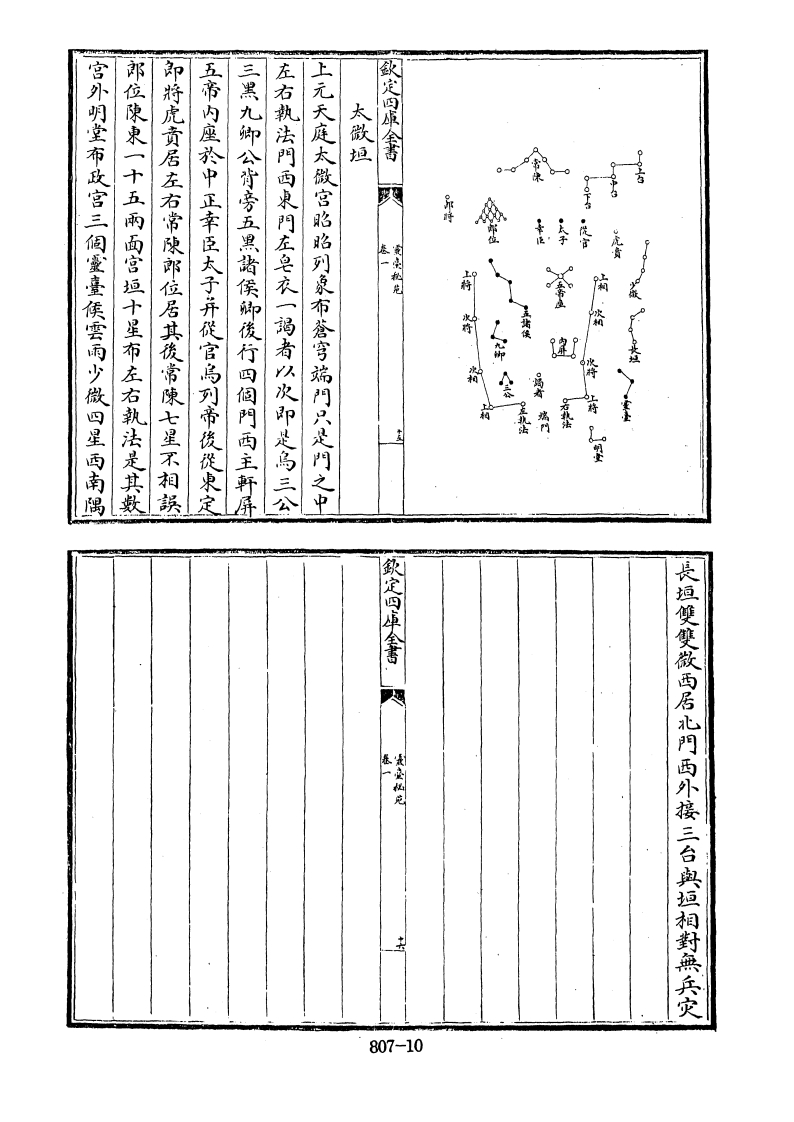 常陳
上台
中台
下台
郎將
郎位
幸臣
太子
從官
虎賁
少微
上將
次將
次相
上相
五諸侯
五帝座
上相
次相
次將
上將
長垣
九卿
內屏
三公
謁者
左執法
端門
右執法
靈臺
明堂
欽定四庫全書
靈臺秘苑
卷一
十五
太微垣
上元天庭太微宮昭昭列象布蒼穹端門只是門之中
左右執法門西東門左皂衣一謁者以次即是烏三公
三黑九卿公背旁五黑諸侯卿後行四個門西主軒屏
五帝內座於中正幸臣太子并從官烏列帝後從東定
郎將虎賁居左右常陳郎位居其後常陳七星不相誤
郎位陳東一十五兩面宮垣十星布左右執法是其數
宮外明堂布政宮三個靈臺候雲雨少微四星西南隅
長垣雙雙微西居北門西外接三台與垣相對無兵灾
欽定四庫全書
靈臺秘苑
卷一
十六
807-10